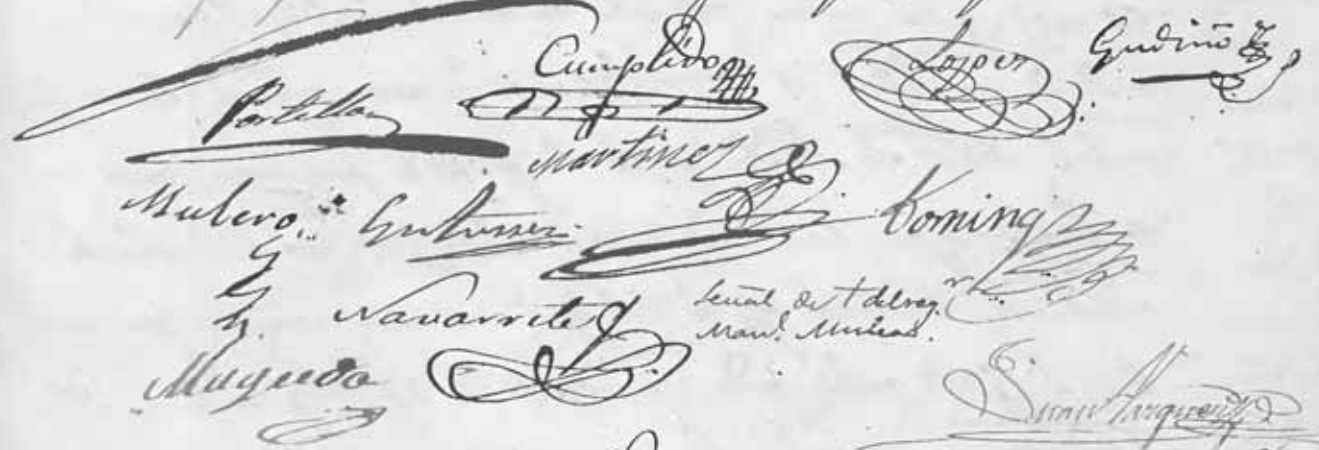 Cumplido
Lopez
Gudiño
Portillo
Martinez
Mulero
Gutierrez
Doming
Navarrete
Señal de + del reg.ʳ
Man.ˡ
Maqueda
Juan Marquez